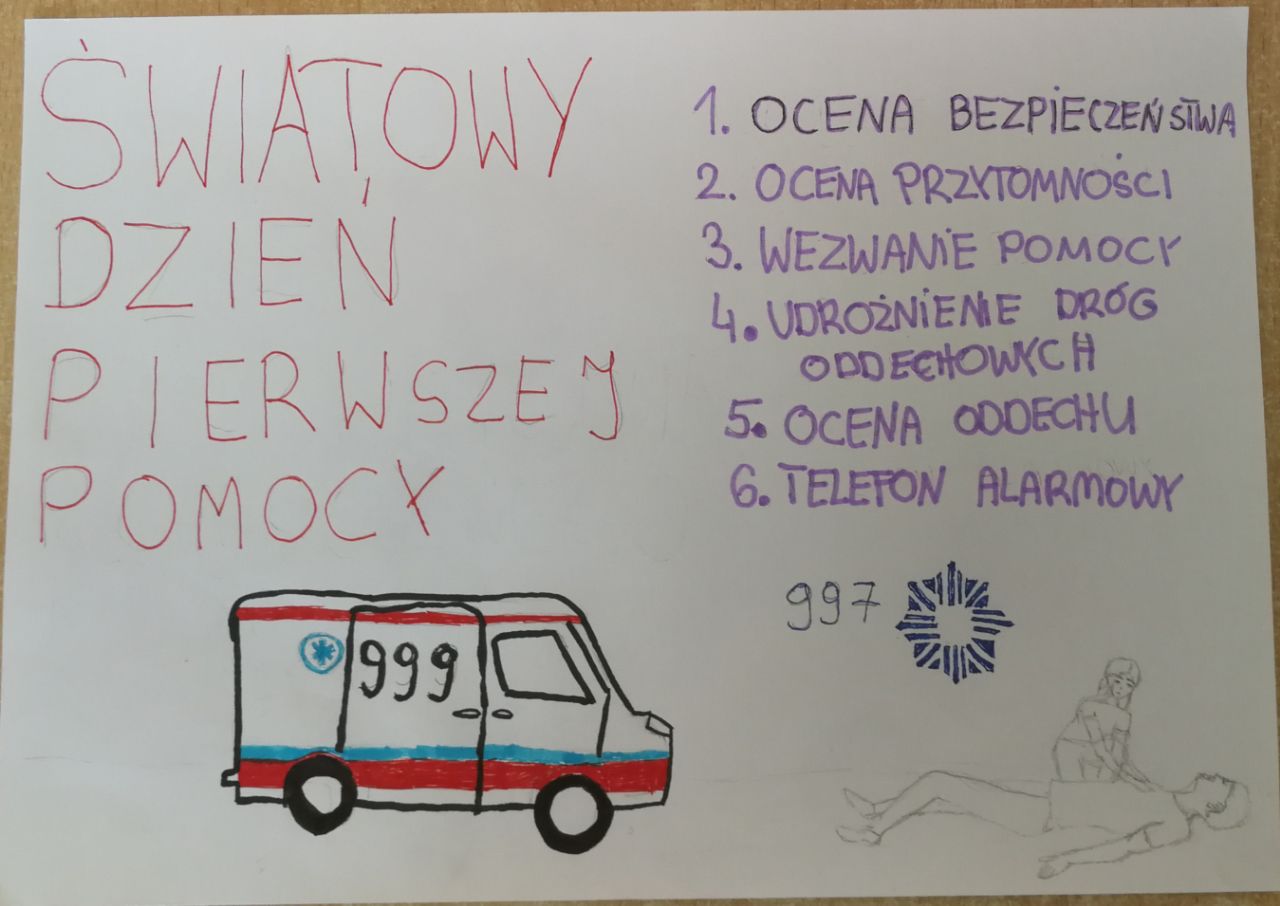 ŚWIATOWY
DZIEŃ
PIERWSZEJ
POMOCY
1. OCENA BEZPIECZEŃSTWA
2. OCENA PRZYTOMNOŚCI
3. WEZWANIE POMOCY
4. UDROŻNIENIE DRÓG
ODDECHOWYCH
5. OCENA ODDECHU
6. TELEFON ALARMOWY
997
999